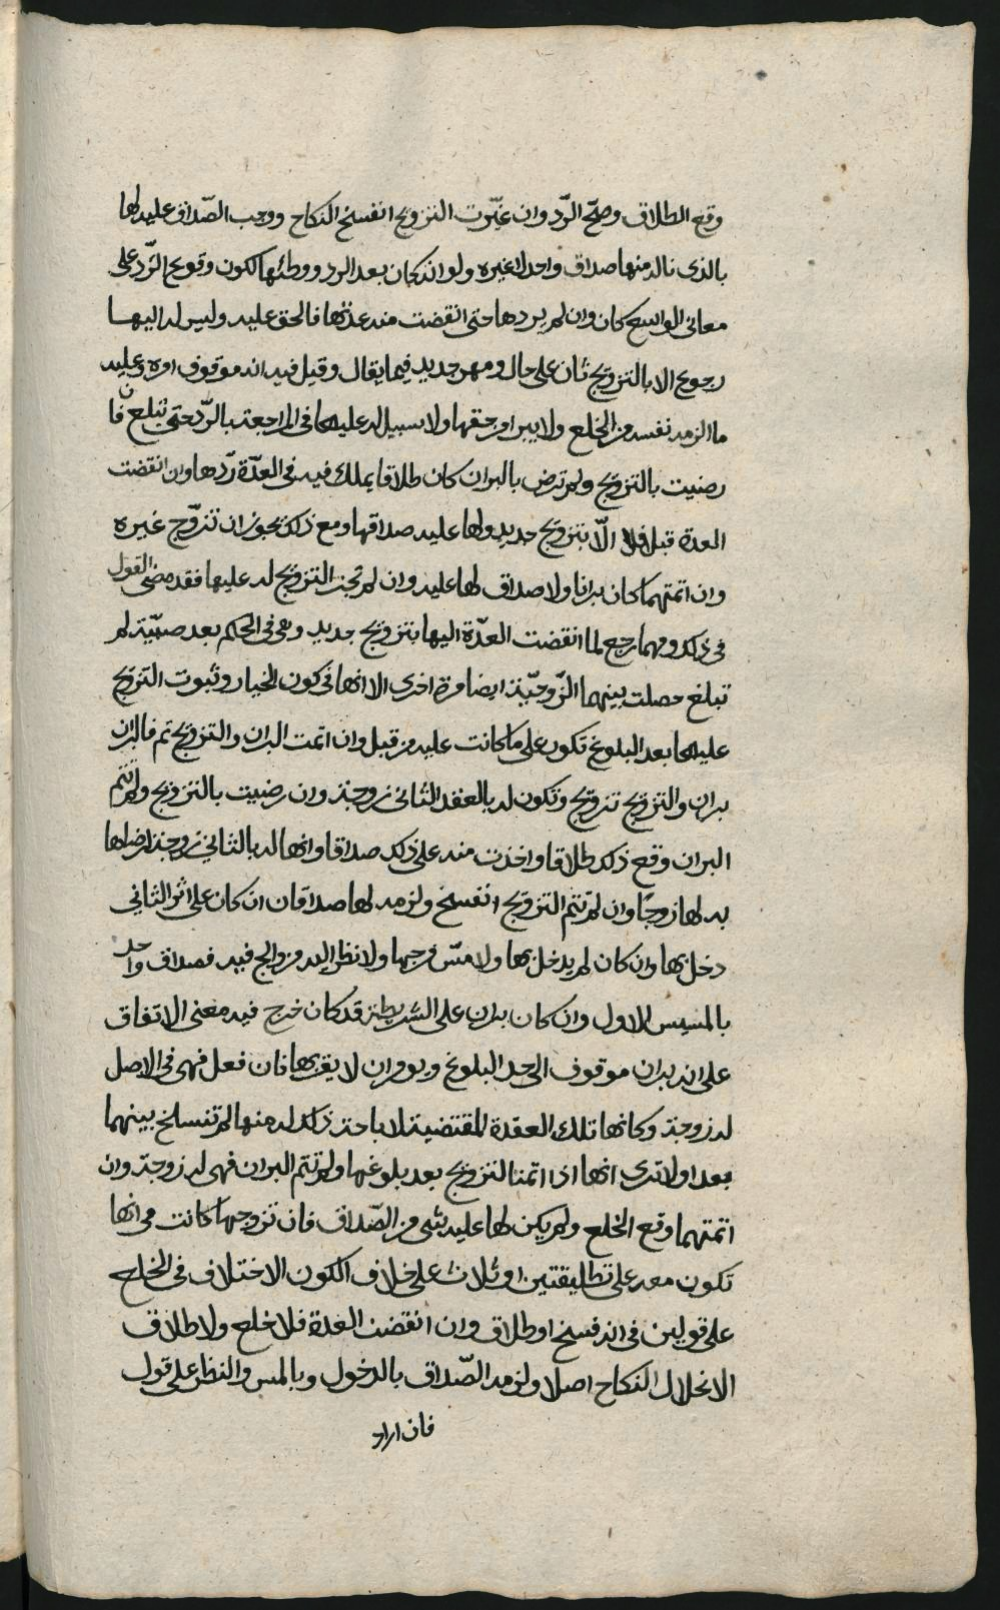 وقع الطلاق وصحّ الرّد وان غيّرت التزويج انفسخ النكاح ووجب الصّداق عليه لها
بالذى ناله منها صداق واحد لا غيره ولو انه كان بعد الرد ووطئها لكون وقوع الرّد على
معانى الواسع كان وان لم يردها حتى انقضت منه عدتها فالحق عليه وليس له اليها
رجوع الا بالتزويج ثان على حال ومهر جديد فيما يقال وقيل فيه انه موقوف امره وعليه
ما الزمه نفسه من الخلع ولا يبرا من حقها ولا سبيل له عليها فى المراجعة بالرّد حتى تبلغ فان
رضيت بالتزويج ولم ترض بالبران كان طلاقا يملك فيه فى العدّة ردّها وان انقضت
العدة قبل فلا الّا بتزويج جديد ولها عليه صداقها ومع ذلك يجوز ان تتزوّج غيره
وان اتمتهما كان برانا ولا صداق لها عليه وان لم تجز التزويج له عليها فقد مضى القول
فى ذلك ومهما رجع لما انقضت العدّة اليها بتزويج جديد وهى فى الحكم بعد صبيّة لم
تبلغ حصلت بينهما الزّوجيّة ايضا مرة اخرى الا انها فى كون الخيار وثبوت التزويج
عليها بعد البلوغ تكون على ما كانت عليه من قبل وان اتمت البران والتزويج تم فالبران
بران والتزويج تزويج وتكون له بالعقد الثانى زوجة وان رضيت بالتزويج ولم تتم
البران وقع ذلك طلاقا واخذت منه على ذلك صداقا وانها له بالثانى زوجة لرضاها
به لها زوجًا وان لم تتم التزويج انفسخ ولزمه لها صداقان ان كان على اثر الثانى
دخل بها وان كان لم يدخل بها ولا مسّ فرجها ولا نظر اليه من والج فيه فصداق واحد
بالمسيس للاول وان كان بران على الشريطة قد كان خرج فيه معنى الاتفاق
على انه بران موقوف الى حد البلوغ ويومر ان لا يقربها فان فعل فهى فى الاصل
له زوجة وكانها تلك العقدة المقتضية لاباحة ذلك له منها لم تنسلخ بينهما
بعد اولا ترى انها اذا اتمت التزويج بعد بلوغها ولم تتم البران فهى له زوجة وان
اتمتهما وقع الخلع ولم يكن لها عليه شى من الصّداق فان تزوجها كانت فى انها
تكون معه على تطليقتين او ثلاث على خلاف لكون الاختلاف فى الخلع
على قولين فى انه فسخ او طلاق وان انقضت العدة فلا خلع ولا طلاق
الانحلال النكاح اصلا ولزمه الصّداق بالدخول وبالمس والنظر على قول
فان اراد